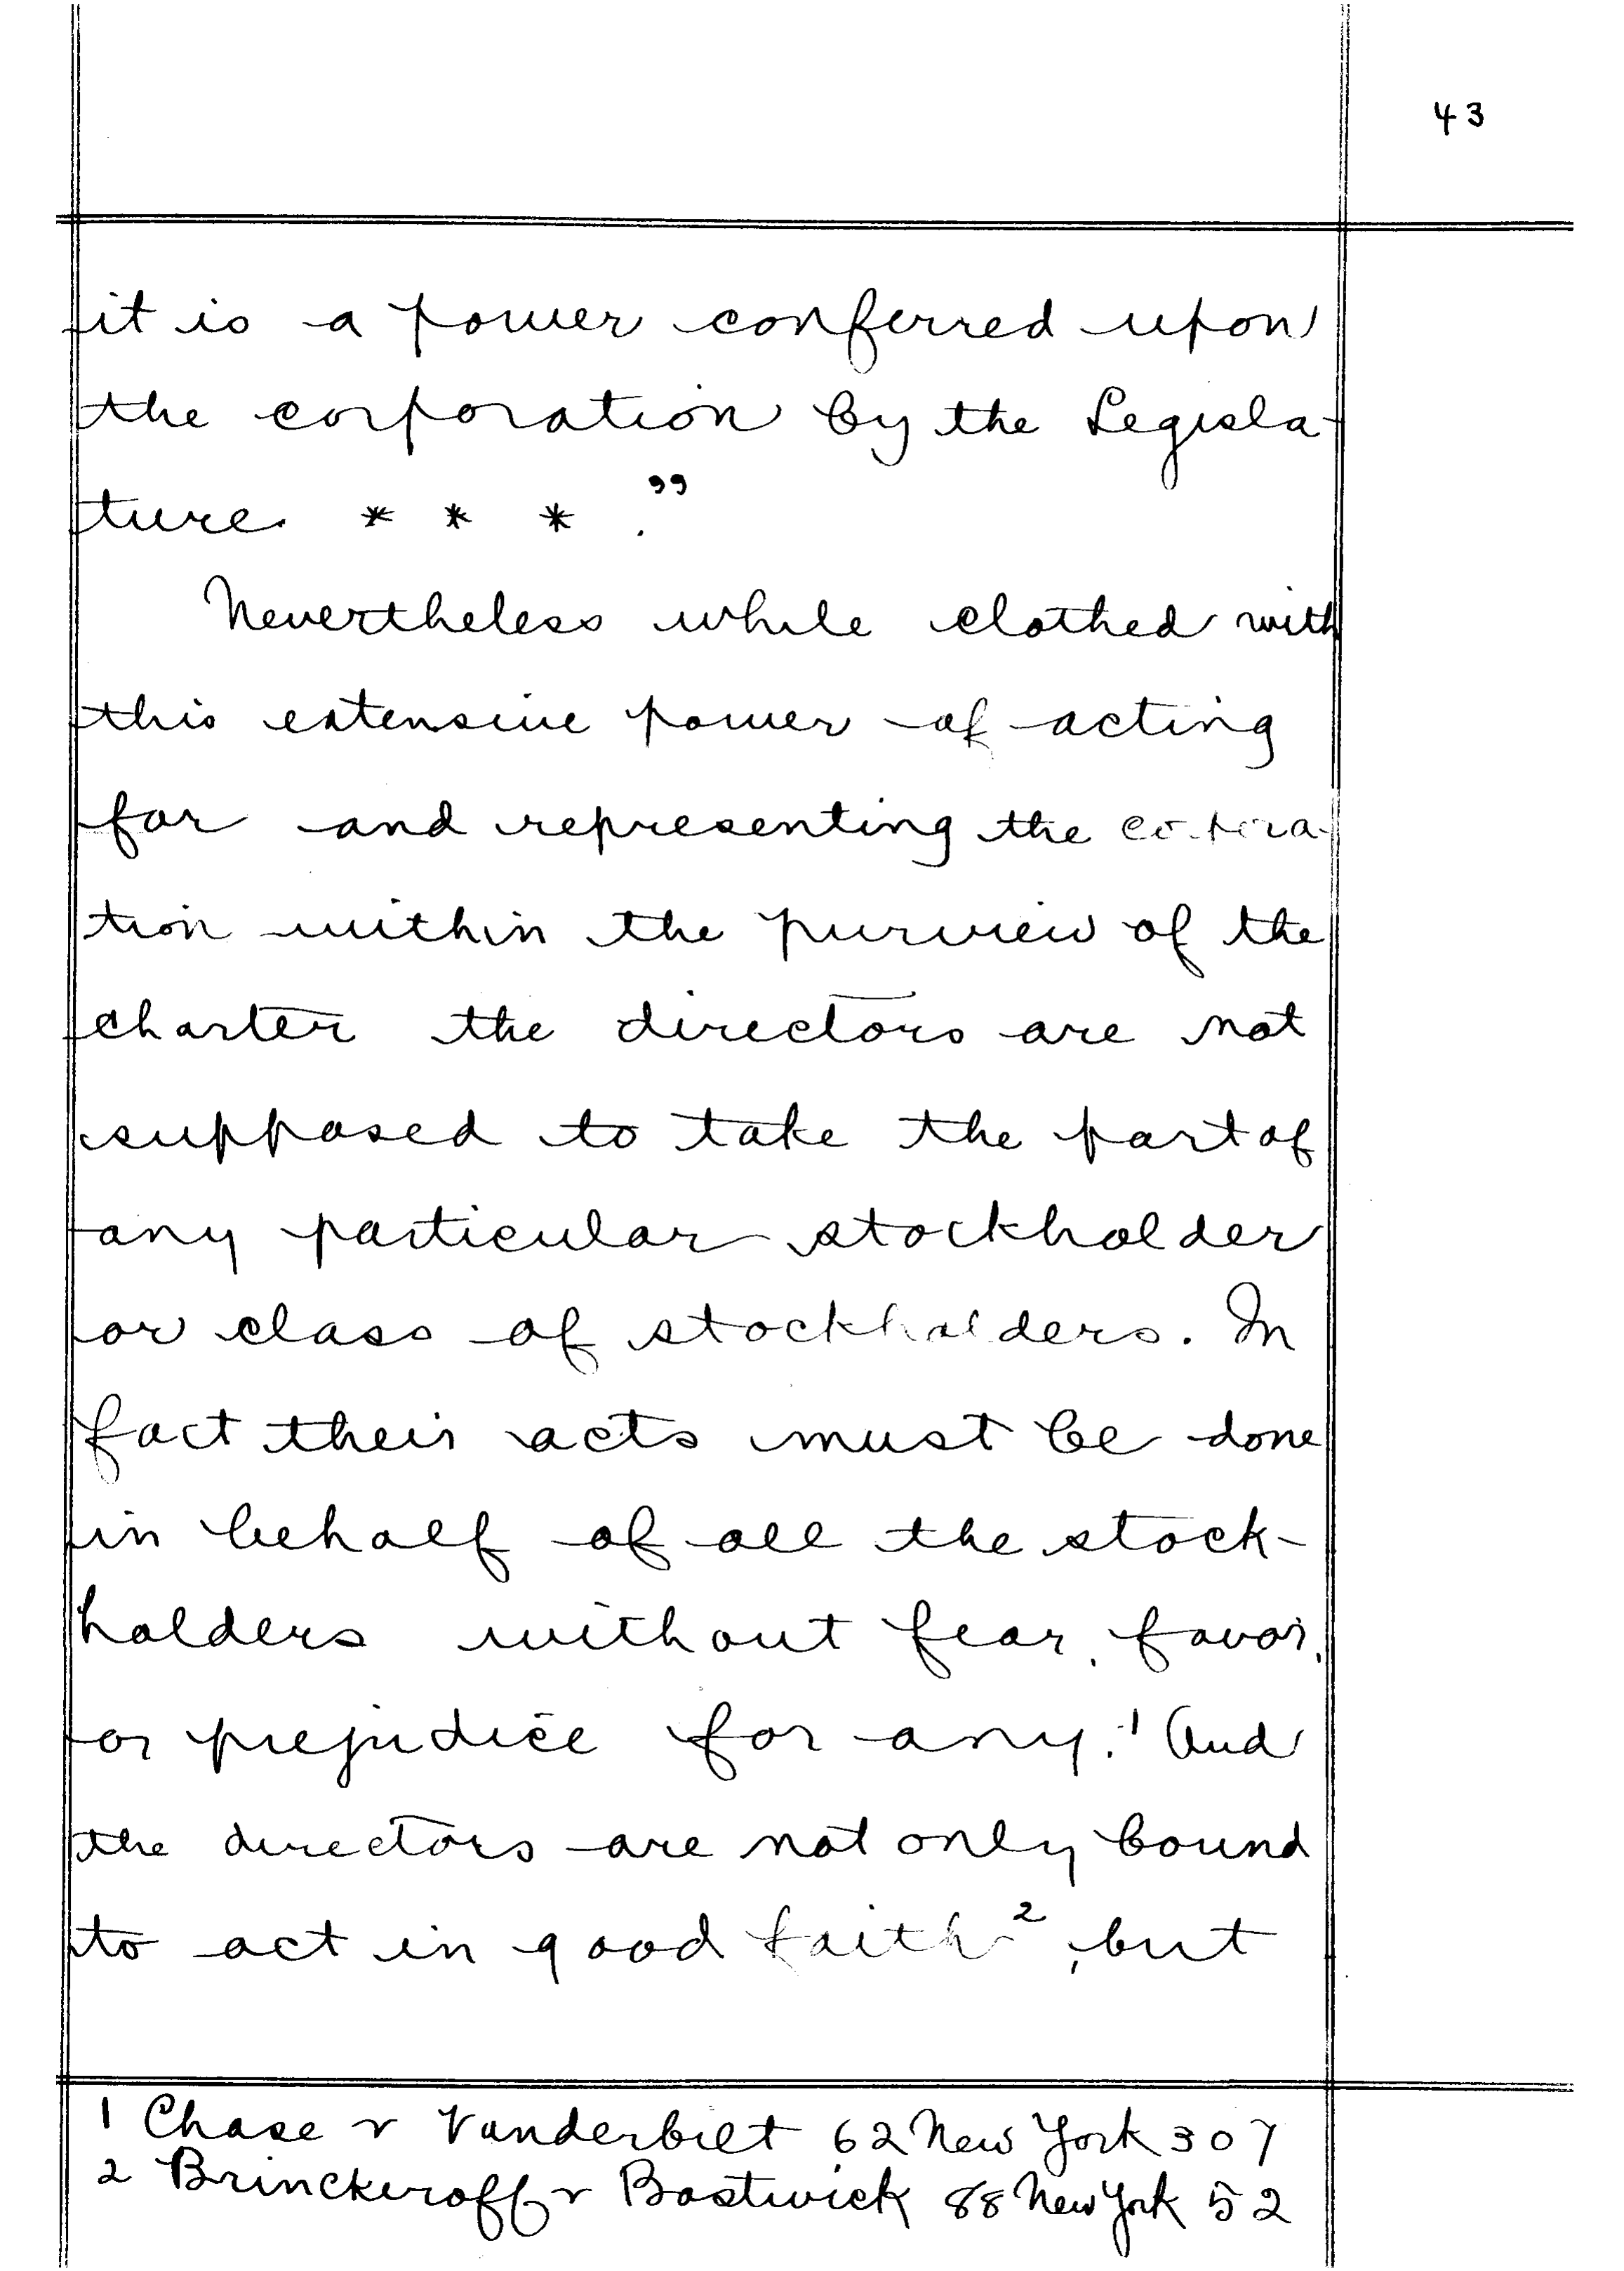 43
it is a power conferred upon
the corporation by the Legisla-
ture. * * * ."
Nevertheless while clothed with
this extensive power of acting
for and representing the corpora-
tion within the purview of the
charter the directors are not
supposed to take the part of
any particular stockholder
or class of stockholders. In
fact their acts must be done
in behalf of all the stock-
holders without fear, favor,
or prejudice for any.¹ And
the directors are not only bound
to act in good faith², but
1 Chase v Vanderbilt 62 New York 307
2 Brinckeroff v Bostwick 88 New York 52